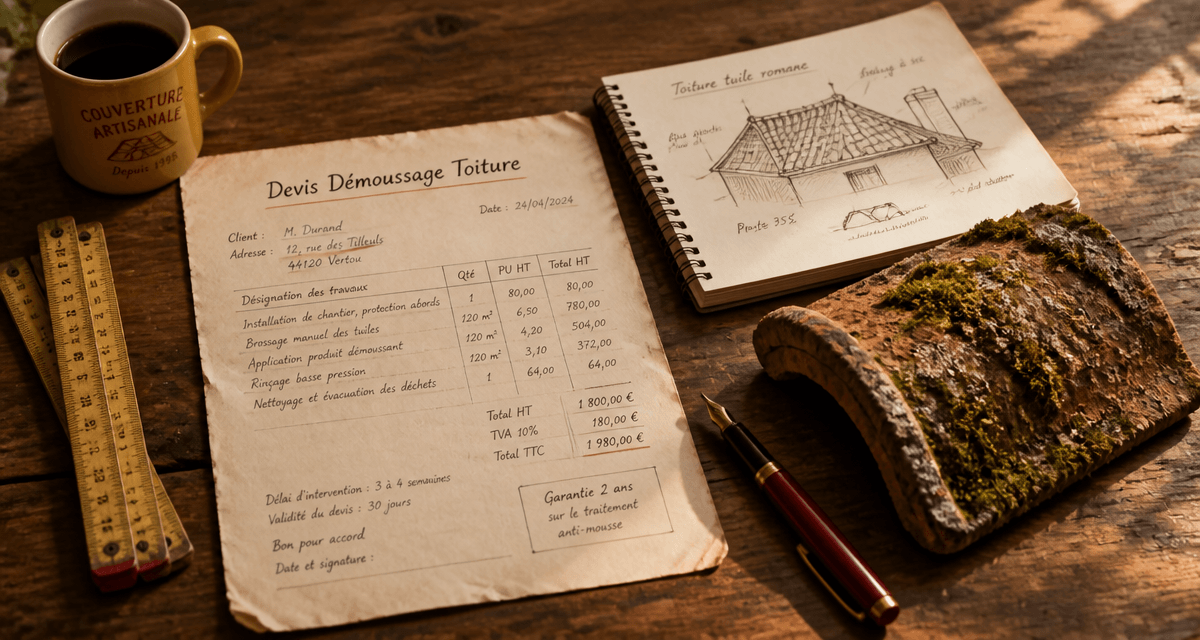 COUVERTURE
ARTISANALE
Depuis
Devis Démoussage Toiture
Date : 24/04/2024
Client : M. Durand
Adresse : 12, rue des Tilleuls
44120 Vertou
Désignation des travaux Qté PU HT Total HT
Installation de chantier, protection abords 1 80,00 80,00
Brossage manuel des tuiles 120 m² 6,50 780,00
Application produit démoussant 120 m² 4,20 504,00
Rinçage basse pression 120 m² 3,10 372,00
Nettoyage et évacuation des déchets 1 64,00 64,00
Total HT 1 800,00 €
TVA 10% 180,00 €
Total TTC 1 980,00 €
Délai d'intervention : 3 à 4 semaines
Validité du devis : 30 jours
Bon pour accord
Date et signature :
Garantie 2 ans
sur le traitement
anti-mousse
Toiture tuile romane